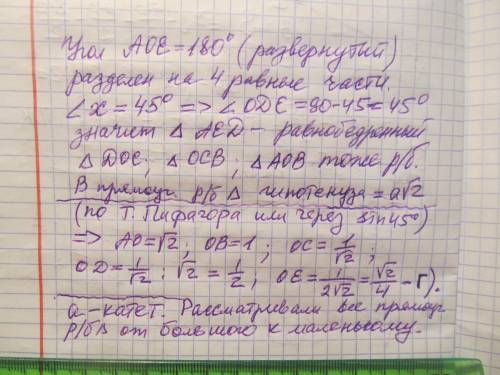 Угол AOE = 180° (развернутый)
разделен на 4 равные части.
∠x = 45° => ∠ODE = 90-45 = 45°
значит △ AED - равнобедренный
△ DOE; △ OCB; △ AOB тоже р/б.
В прямоуг. р/б △ гипотенуза = a√2
(по Т. Пифагора или через sin 45°)
=> AO = √2; OB = 1; OC = 1/√2;
OD = 1/√2 : √2 = 1/2; OE = 1/2√2 = √2/4 - Г).
a - катет. Рассматривали все прямоуг.
р/б△ от большого к маленькому.